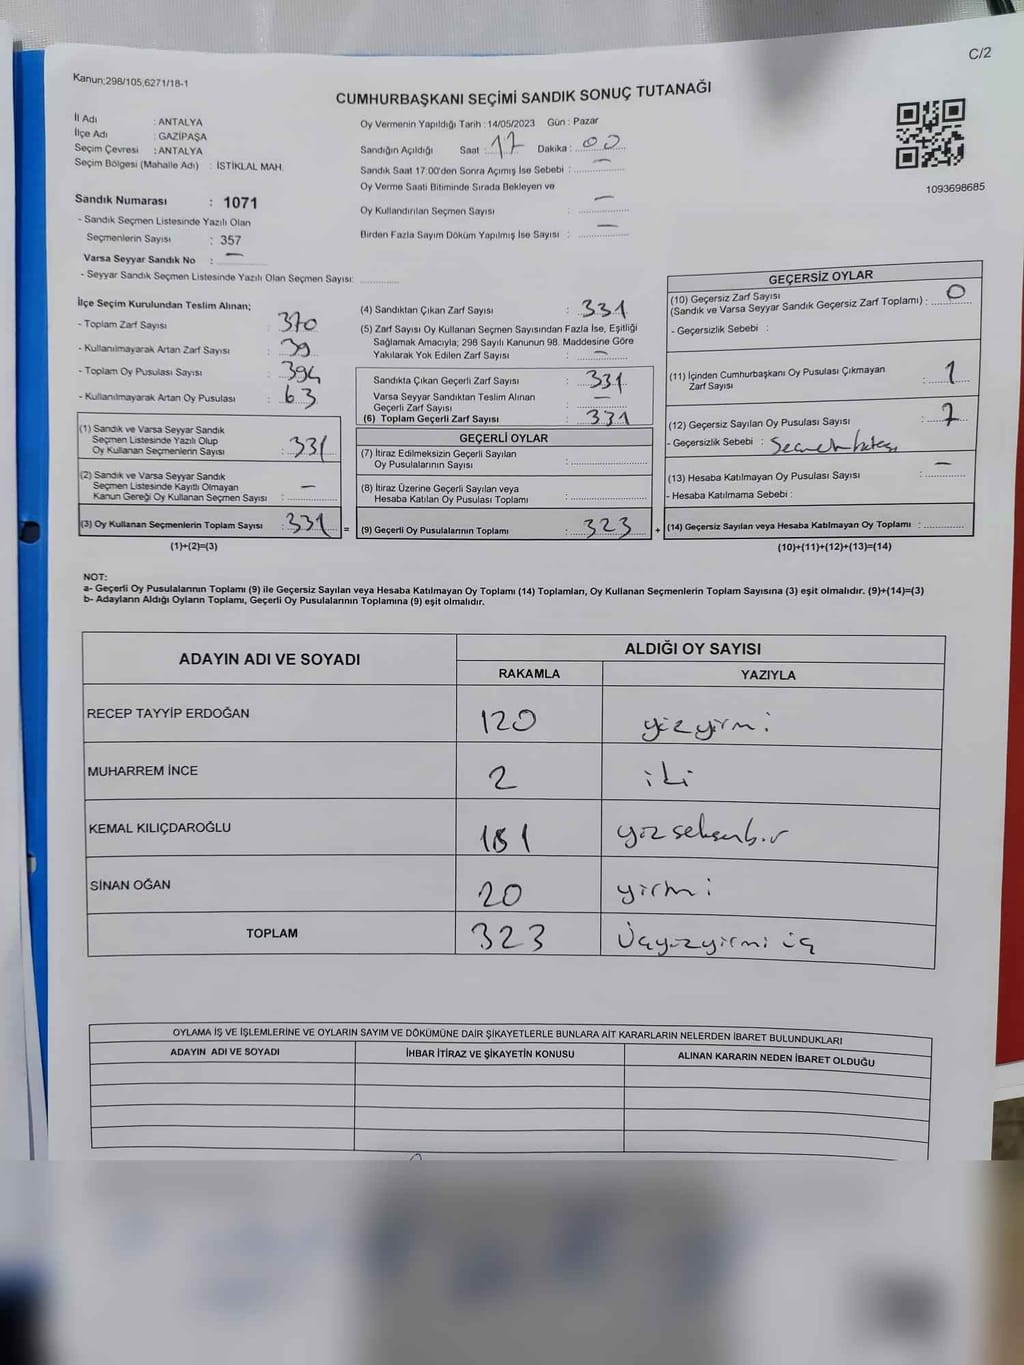 C/2
Kanun:298/105,6271/18-1
CUMHURBAŞKANI SEÇİMİ SANDIK SONUÇ TUTANAĞI
İl Adı : ANTALYA
İlçe Adı : GAZİPAŞA
Seçim Çevresi : ANTALYA
Seçim Bölgesi (Mahalle Adı) : İSTİKLAL MAH.
Sandık Numarası : 1071
- Sandık Seçmen Listesinde Yazılı Olan
Seçmenlerin Sayısı : 357
Varsa Seyyar Sandık No : —
- Seyyar Sandık Seçmen Listesinde Yazılı Olan Seçmen Sayısı: ............
Oy Vermenin Yapıldığı Tarih :14/05/2023 Gün : Pazar
Sandığın Açıldığı Saat : 17 Dakika : 00
Sandık Saat 17:00'den Sonra Açımış İse Sebebi : —
Oy Verme Saati Bitiminde Sırada Bekleyen ve
Oy Kullandırılan Seçmen Sayısı : —
Birden Fazla Sayım Döküm Yapılmış İse Sayısı : —
1093698685
İlçe Seçim Kurulundan Teslim Alınan;
- Toplam Zarf Sayısı : 370
- Kullanılmayarak Artan Zarf Sayısı : 39
- Toplam Oy Pusulası Sayısı : 394
- Kullanılmayarak Artan Oy Pusulası : 63
(1) Sandık ve Varsa Seyyar Sandık
Seçmen Listesinde Yazılı Olup
Oy Kullanan Seçmenlerin Sayısı : 331
(2) Sandık ve Varsa Seyyar Sandık
Seçmen Listesinde Kayıtlı Olmayan
Kanun Gereği Oy Kullanan Seçmen Sayısı : —
(3) Oy Kullanan Seçmenlerin Toplam Sayısı : 331 =
(1)+(2)=(3)
(4) Sandıktan Çıkan Zarf Sayısı : 331
(5) Zarf Sayısı Oy Kullanan Seçmen Sayısından Fazla İse, Eşitliği
Sağlamak Amacıyla; 298 Sayılı Kanunun 98. Maddesine Göre
Yakılarak Yok Edilen Zarf Sayısı : —
Sandıkta Çıkan Geçerli Zarf Sayısı : 331
Varsa Seyyar Sandıktan Teslim Alınan
Geçerli Zarf Sayısı : —
(6) Toplam Geçerli Zarf Sayısı : 331
GEÇERLİ OYLAR
(7) İtiraz Edilmeksizin Geçerli Sayılan
Oy Pusulalarının Sayısı : ............
(8) İtiraz Üzerine Geçerli Sayılan veya
Hesaba Katılan Oy Pusulası Toplamı : ............
(9) Geçerli Oy Pusulalarının Toplamı : 323 +
GEÇERSİZ OYLAR
(10) Geçersiz Zarf Sayısı
(Sandık ve Varsa Seyyar Sandık Geçersiz Zarf Toplamı) : 0
- Geçersizlik Sebebi :
(11) İçinden Cumhurbaşkanı Oy Pusulası Çıkmayan
Zarf Sayısı : 1
(12) Geçersiz Sayılan Oy Pusulası Sayısı : 7
- Geçersizlik Sebebi : Seçmen hatası
(13) Hesaba Katılmayan Oy Pusulası Sayısı : —
- Hesaba Katılmama Sebebi :
(14) Geçersiz Sayılan veya Hesaba Katılmayan Oy Toplamı : ............
(10)+(11)+(12)+(13)=(14)
NOT:
a- Geçerli Oy Pusulalarının Toplamı (9) ile Geçersiz Sayılan veya Hesaba Katılmayan Oy Toplamı (14) Toplamları, Oy Kullanan Seçmenlerin Toplam Sayısına (3) eşit olmalıdır. (9)+(14)=(3)
b- Adayların Aldığı Oyların Toplamı, Geçerli Oy Pusulalarının Toplamına (9) eşit olmalıdır.
ADAYIN ADI VE SOYADI
ALDIĞI OY SAYISI
RAKAMLA YAZIYLA
RECEP TAYYİP ERDOĞAN 120 yüzyirmi
MUHARREM İNCE 2 iki
KEMAL KILIÇDAROĞLU 181 yüzseksenbir
SİNAN OĞAN 20 yirmi
TOPLAM 323 Üçyüzyirmi üç
OYLAMA İŞ VE İŞLEMLERİNE VE OYLARIN SAYIM VE DÖKÜMÜNE DAİR ŞİKAYETLERLE BUNLARA AİT KARARLARIN NELERDEN İBARET BULUNDUKLARI
ADAYIN ADI VE SOYADI İHBAR İTİRAZ VE ŞİKAYETİN KONUSU ALINAN KARARIN NEDEN İBARET OLDUĞU